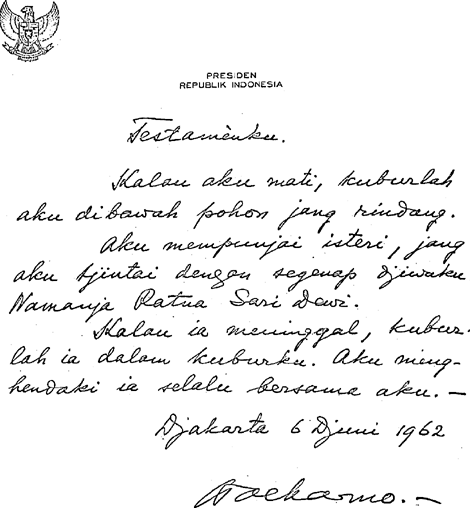 PRESIDEN
REPUBLIK INDONESIA
Testamenku.
Kalau aku mati, kuburlah
aku dibawah pohon jang rindang.
Aku mempunjai isteri, jang
aku tjintai dengan segenap djiwaku
Namanja Ratna Sari Dewi.
Kalau ia meninggal, kubur-
lah ia dalam kuburku. Aku meng-
hendaki ia selalu bersama aku. —
Djakarta 6 Djuni 1962
Soekarno. —